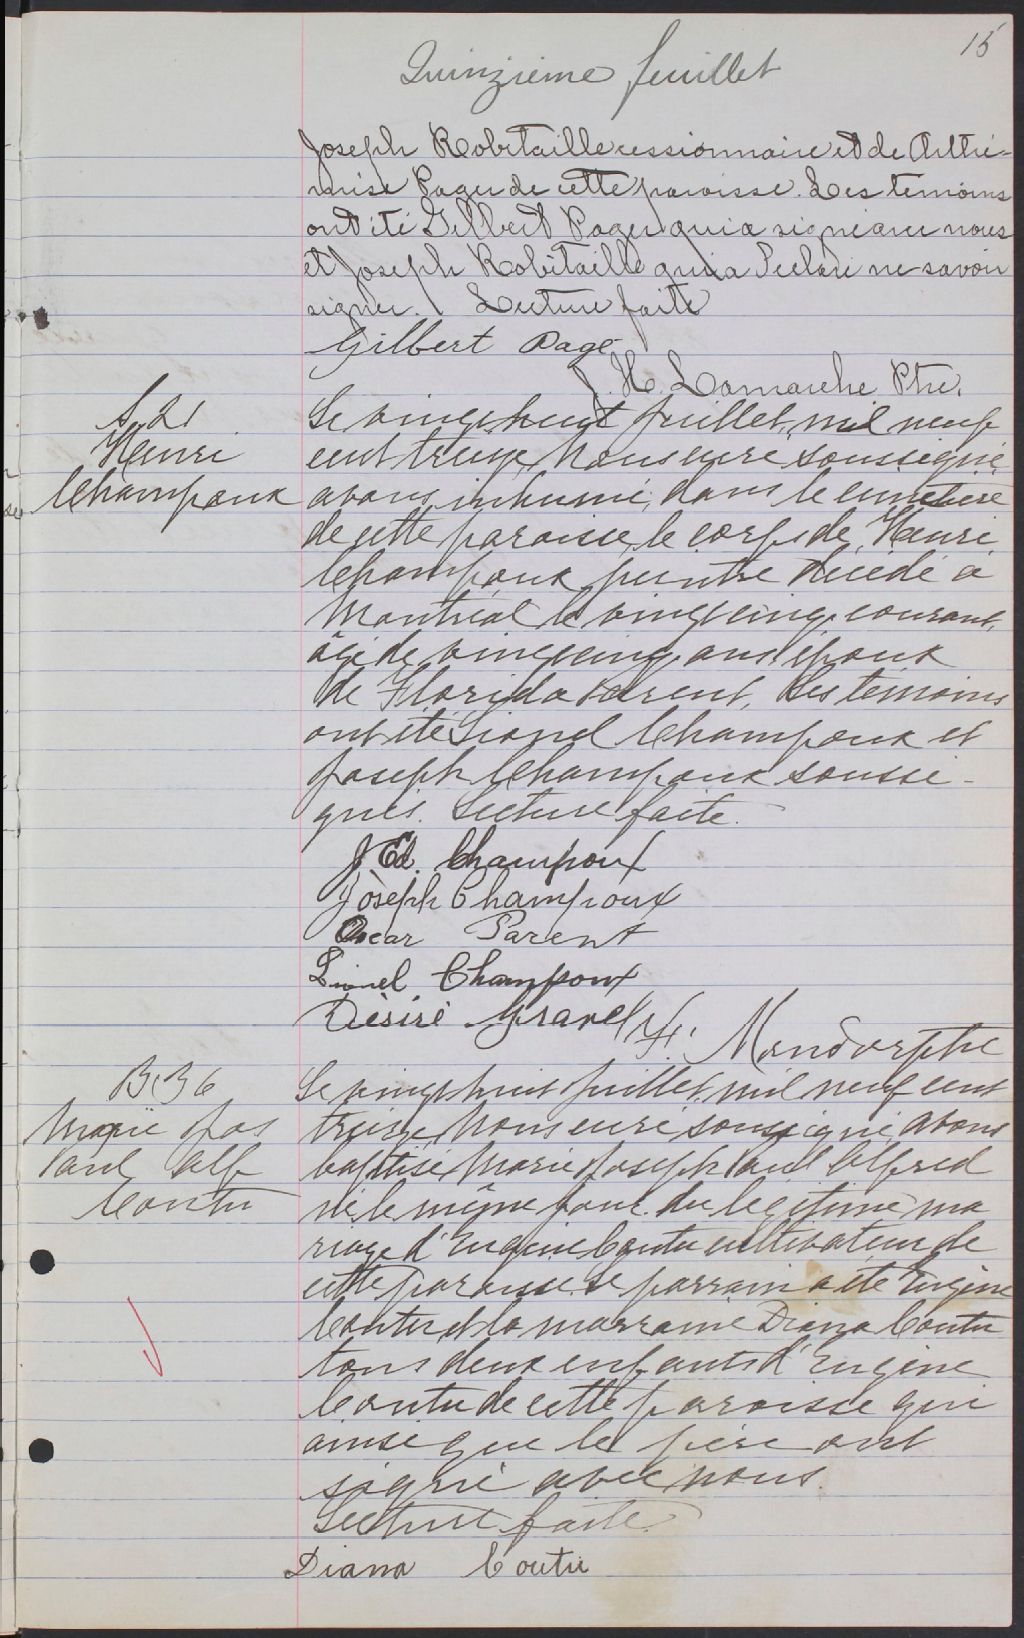 15
Quinzième feuillet
Joseph Robitaille cessionnaire et de Arthé-
mise Pager de cette paroisse. Les témoins
ont été Gilbert Pager qui a signé avec nous
et Joseph Robitaille qui a déclaré ne savoir
signer. Lecture faite
Gilbert Page
J. H. Lamarche Ptre.
S. 21
Henri
Champoux
Le vingt huit juillet, mil neuf
cent treize, Nous curé soussigné
avons inhumé, dans le cimetière
de cette paroisse, le corps de Henri
Champoux peintre décédé a
Montréal le vingt cinq courant,
âgé de vingt cinq ans époux
de Florida Parent, Les témoins
ont été Lionel Champoux et
Joseph Champoux soussi-
gnés. Lecture faite.
J Ed. Champoux
Joseph Champoux
Oscar Parent
Lionel Champoux
Désiré Gravel
B. 36
Marie Jos
Paul Alf
Coutu
Le vingt huit juillet, mil neuf cent
treize, Nous curé soussigné, avons
baptisé Marie Joseph Paul Alfred
né le même jour du légitime ma
riage d'Eugène Coutu cultivateur de
cette paroisse. Le parrain a été Eugène
Coutu et la marraine Diana Coutu
tous deux enfants d'Eugène
Coutu de cette paroisse qui
ainsi que le père ont
signé avec nous.
Lecture faite.
Diana Coutu